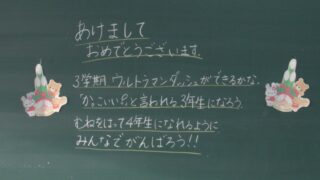 あけまして
おめでとうございます。
3学期、ウルトラマンダッシュができるかな。
「かっこいい?」と言われる3年生になろう。
むねをはって4年生になれるように
みんなでがんばろう!!